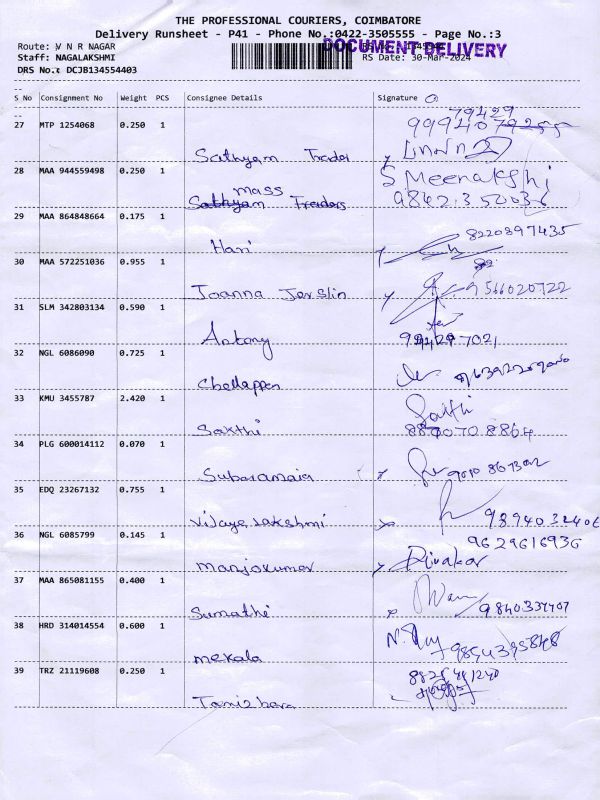 THE PROFESSIONAL COURIERS, COIMBATORE
Delivery Runsheet - P41 - Phone No.:0422-3505555 - Page No.:3
Route: V N R NAGAR
DOCUMENT DELIVERY
Staff: NAGALAKSHMI
RS Date: 30-Mar-2024
DRS No.: DCJB134554403
S No Consignment No Weight PCS Consignee Details Signature
79429
27 MTP 1254068 0.250 1 99940
Sathyam Trader
28 MAA 944559498 0.250 1 S Meenakshi
mass
Sathyam Traders 9842350036
29 MAA 864848664 0.175 1
Hari 8220897435
30 MAA 572251036 0.955 1
Joanna Jerslin 9566020722
31 SLM 342803134 0.590 1
Antony 7021
32 NGL 6086090 0.725 1
Chellappen
33 KMU 3455787 2.420 1 Sakthi
Sakthi 8870708864
34 PLG 600014112 0.070 1
Subaramaier
35 EDQ 23267132 0.755 1
Vijaya lakshmi
36 NGL 6085799 0.145 1 9629616936
manjokumar Divakar
37 MAA 865081155 0.400 1
Sumathi
38 HRD 314014554 0.600 1
mekala
39 TRZ 21119608 0.250 1